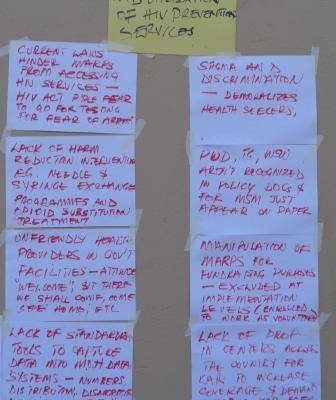 UTILIZATION
OF HIV PREVENTION
SERVICES
CURRENT LAWS
HINDER MARPS
FROM ACCESSING
HIV SERVICES –
HIV ACT PPLE FEAR
TO GO FOR TESTING
FOR FEAR OF ARREST
LACK OF HARM
REDUCTION INTERVENTIONS
EG. NEEDLE &
SYRINGE EXCHANGE
PROGRAMMES AND
OPIOID SUBSTITUTION
TREATMENT
UNFRIENDLY HEALTH
PROVIDERS IN GOV'T
FACILITIES – ATTITUDE
"WELCOME", SIT THERE
WE SHALL COME, COME
LACK OF STANDARD
TOOLS TO CAPTURE
DATA INTO
SYSTEMS – NUMBERS
DISTRIBUTION,
STIGMA AND
DISCRIMINATION
– DEMORALIZES
HEALTH SEEKERS,
PWID, TG, WSW
AREN'T RECOGNIZED
IN POLICY DOCS &
FOR MSM JUST
APPEAR ON PAPER
MANIPULATION OF
MARPS FOR
FUNDRAISING PURPOSES
– EXCLUDED AT
IMPLEMENTATION
LEVELS & ENROLLED
TO WORK AS VOLUNTEERS
LACK OF DROP
IN CENTERS ACROSS
THE COUNTRY FOR
TO INCREASE
COVERAGE & DEMAND